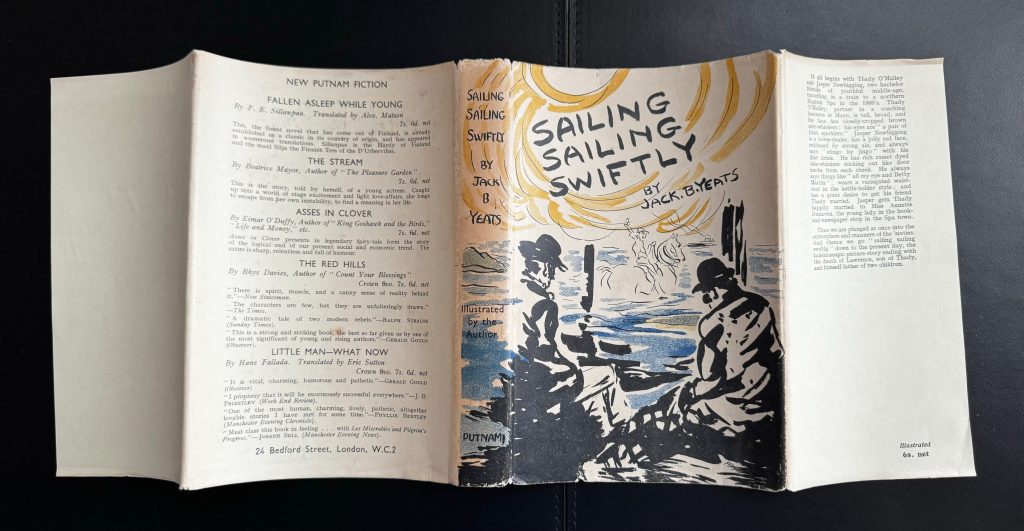 NEW PUTNAM FICTION
FALLEN ASLEEP WHILE YOUNG
By F. E. Sillanpaa. Translated by Alex. Matson
7s. 6d. net
This, the finest novel that has come out of Finland, is already
established as a classic in its country of origin, and has appeared
in numerous translations. Sillanpaa is the Hardy of Finland
and the maid Silja the Finnish Tess of the D'Urbervilles.
THE STREAM
By Beatrice Mayor, Author of "The Pleasure Garden"
7s. 6d. net
This is the story, told by herself, of a young actress. Caught
up into a world of stage excitement and light love-affairs, she longs
to escape from her own instability, to find a meaning in her life.
ASSES IN CLOVER
By Eimar O'Duffy, Author of "King Goshawk and the Birds,"
"Life and Money," etc.
7s. 6d. net
Asses in Clover presents in legendary fairy-tale form the story
of the logical end of our present social and economic trend. The
satire is sharp, relentless and full of humour.
THE RED HILLS
By Rhys Davies, Author of "Count Your Blessings"
Crown 8vo. 7s. 6d. net
"There is spirit, muscle, and a canny sense of reality behind
it."—New Statesman.
"The characters are few, but they are unfalteringly drawn."
—The Times.
"A dramatic tale of two modern rebels."—RALPH STRAUS
(Sunday Times).
"This is a strong and striking book, the best so far given us by one of
the most significant of young and rising authors."—GERALD GOULD
(Observer).
LITTLE MAN—WHAT NOW
By Hans Fallada. Translated by Eric Sutton
Crown 8vo. 7s. 6d. net
"It is vital, charming, humorous and pathetic."—GERALD GOULD
(Observer)
"I prophesy that it will be enormously successful everywhere."—J. B.
PRIESTLEY (Week End Review).
"One of the most human, charming, lively, pathetic, altogether
lovable stories I have met for some time."—PHYLLIS BENTLEY
(Manchester Evening Chronicle).
"Must class this book in feeling . . . with Les Miserables and Pilgrim's
Progress."—JOSEPH SELL (Manchester Evening News).
24 Bedford Street, London, W.C.2
SAILING
SAILING
SWIFTLY
BY
JACK
B
YEATS
Illustrated
by the
Author
PUTNAM
SAILING
SAILING
SWIFTLY
BY
JACK. B. YEATS
It all begins with Thady O'Malley
and Jasper Newbigging, two bachelor
friends of youthful middle-age,
travelling in a train to a northern
English Spa in the 1860's. Thady
O'Malley, partner in a coaching
business in Mayo, is tall, broad, and
his face has closely-cropped brown
side-whiskers: his eyes are "a pair of
Irish sparklers." Jasper Newbigging
is a horse-dealer, has a jolly red face,
reddened by strong ale, and always
says "stingo by jingo" with his
first drink. He has rich russet dyed
side-whiskers sticking out like door
knobs from each cheek. He always
says things like "all my eye and Betty
Martin"; wears a variegated waist-
coat in the kettle-holder style; and
has a great desire to get his friend
Thady married. Jasper gets Thady
happily married to Miss Annette
Dunaven, the young lady in the book-
and-newspaper shop in the Spa town.
Thus we are plunged at once into the
atmosphere and manners of the 'sixties.
And thence we go "sailing sailing
swiftly" down to the present day, the
kaleidoscopic picture story ending with
the death of Lawrence, son of Thady,
and himself father of two children.
Illustrated
6s. net